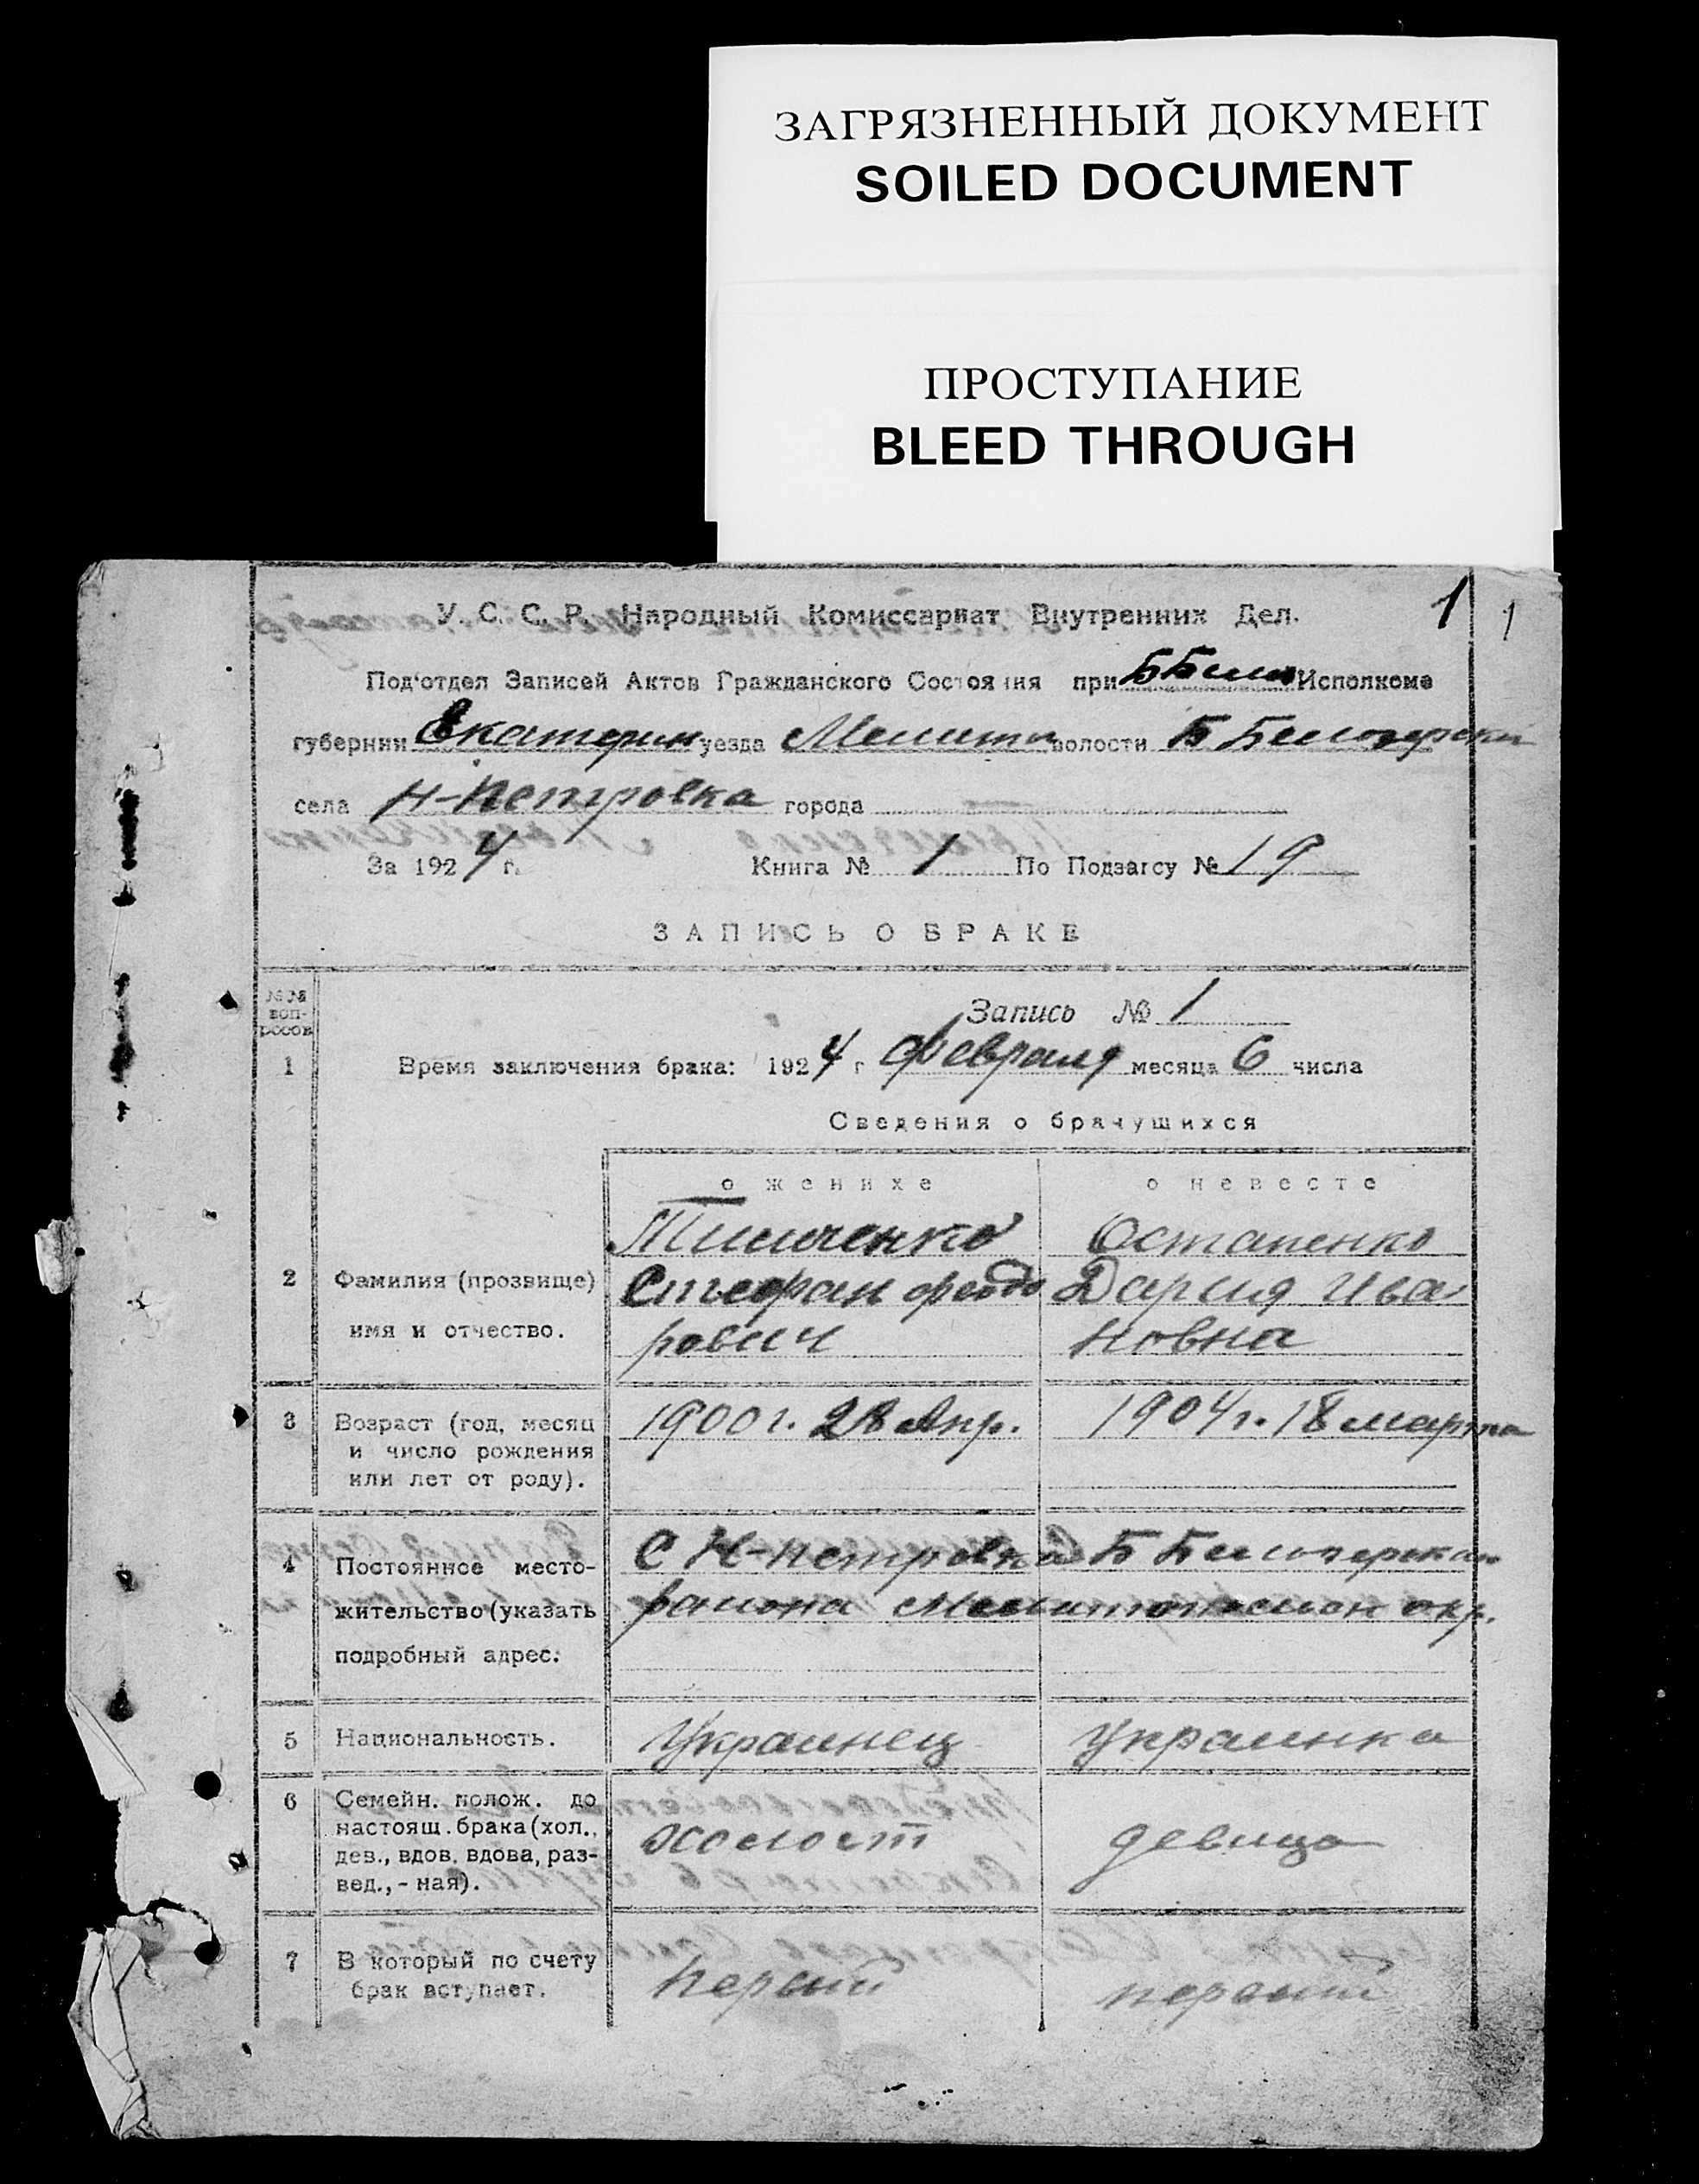 ЗАГРЯЗНЕННЫЙ ДОКУМЕНТ
SOILED DOCUMENT
ПРОСТУПАНИЕ
BLEED THROUGH
1 1
У. С. С. Р. Народный Комиссариат Внутренних Дел.
Под'отдел Записей Актов Гражданского Состояния при Исполкоме
губернии Екатерин уезда Мелито волости Б Белозерски
села Н-Петровка города
За 1924 г. Книга № 1 По Подзагсу № 19
ЗАПИСЬ О БРАКЕ
№№ воп-
росов
Запись № 1
1 Время заключения брака: 1924 г Февраля месяца 6 числа
Сведения о брачущихся
о женихе о невесте
Остапенко
2 Фамилия (прозвище) Стефан Федо Дария Ива
имя и отчество. рович новна
3 Возраст (год, месяц 1900 г. 28 Апр. 1904 г. 18 марта
и число рождения
или лет от роду).
4 Постоянное место- С Н-петровка Б Белозерскан
жительство (указать района Мелитопольскон окр.
подробный адрес.
5 Национальность. Украинец Украинка
6 Семейн. полож. до
настоящ. брака (хол., холост девица
дев., вдов. вдова, раз-
вед., - ная).
7 В который по счету первый первый
брак вступает.